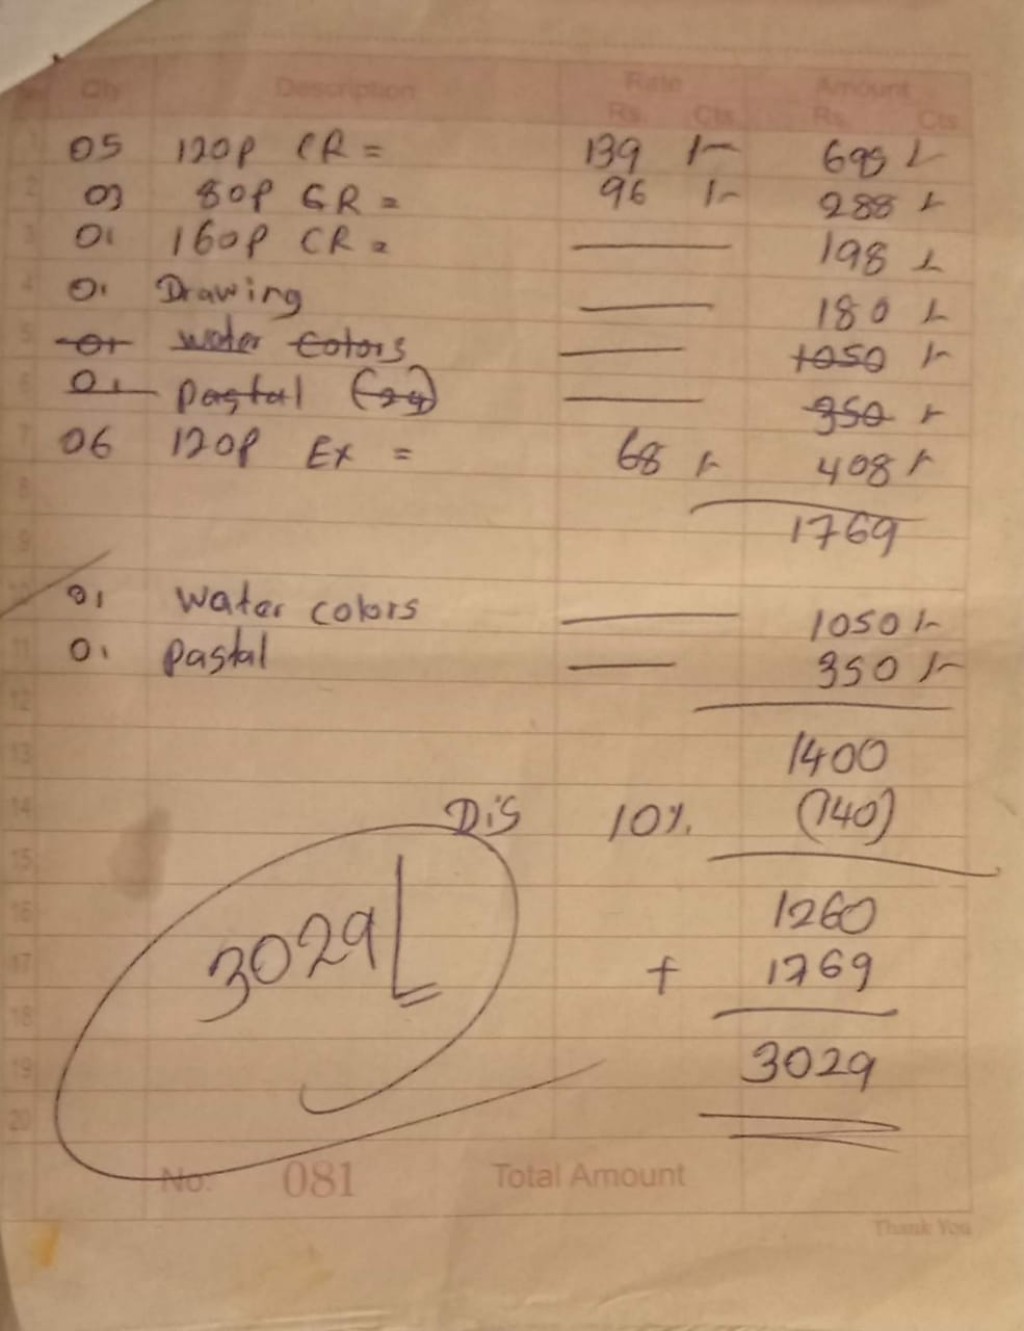 Qty Description Rate Amount
Rs. Cts. Rs. Cts.
1 05 120p CR = 139 /- 695 /-
2 03 80p GR = 96 /- 288 /-
3 01 160p CR = 198 /-
4 01 Drawing 180 /-
5 01 water colors 1050 /-
6 01 pastal (24) 350 /-
7 06 120p Ex = 68 /- 408 /-
8
9 1769
10 01 water colors 1050 /-
11 01 pastal 350 /-
12
13 1400
14 Dis 10%. (140)
15
16 1260
17 + 1769
18
3029/=
19 3029
20
No: 081 Total Amount
Thank You